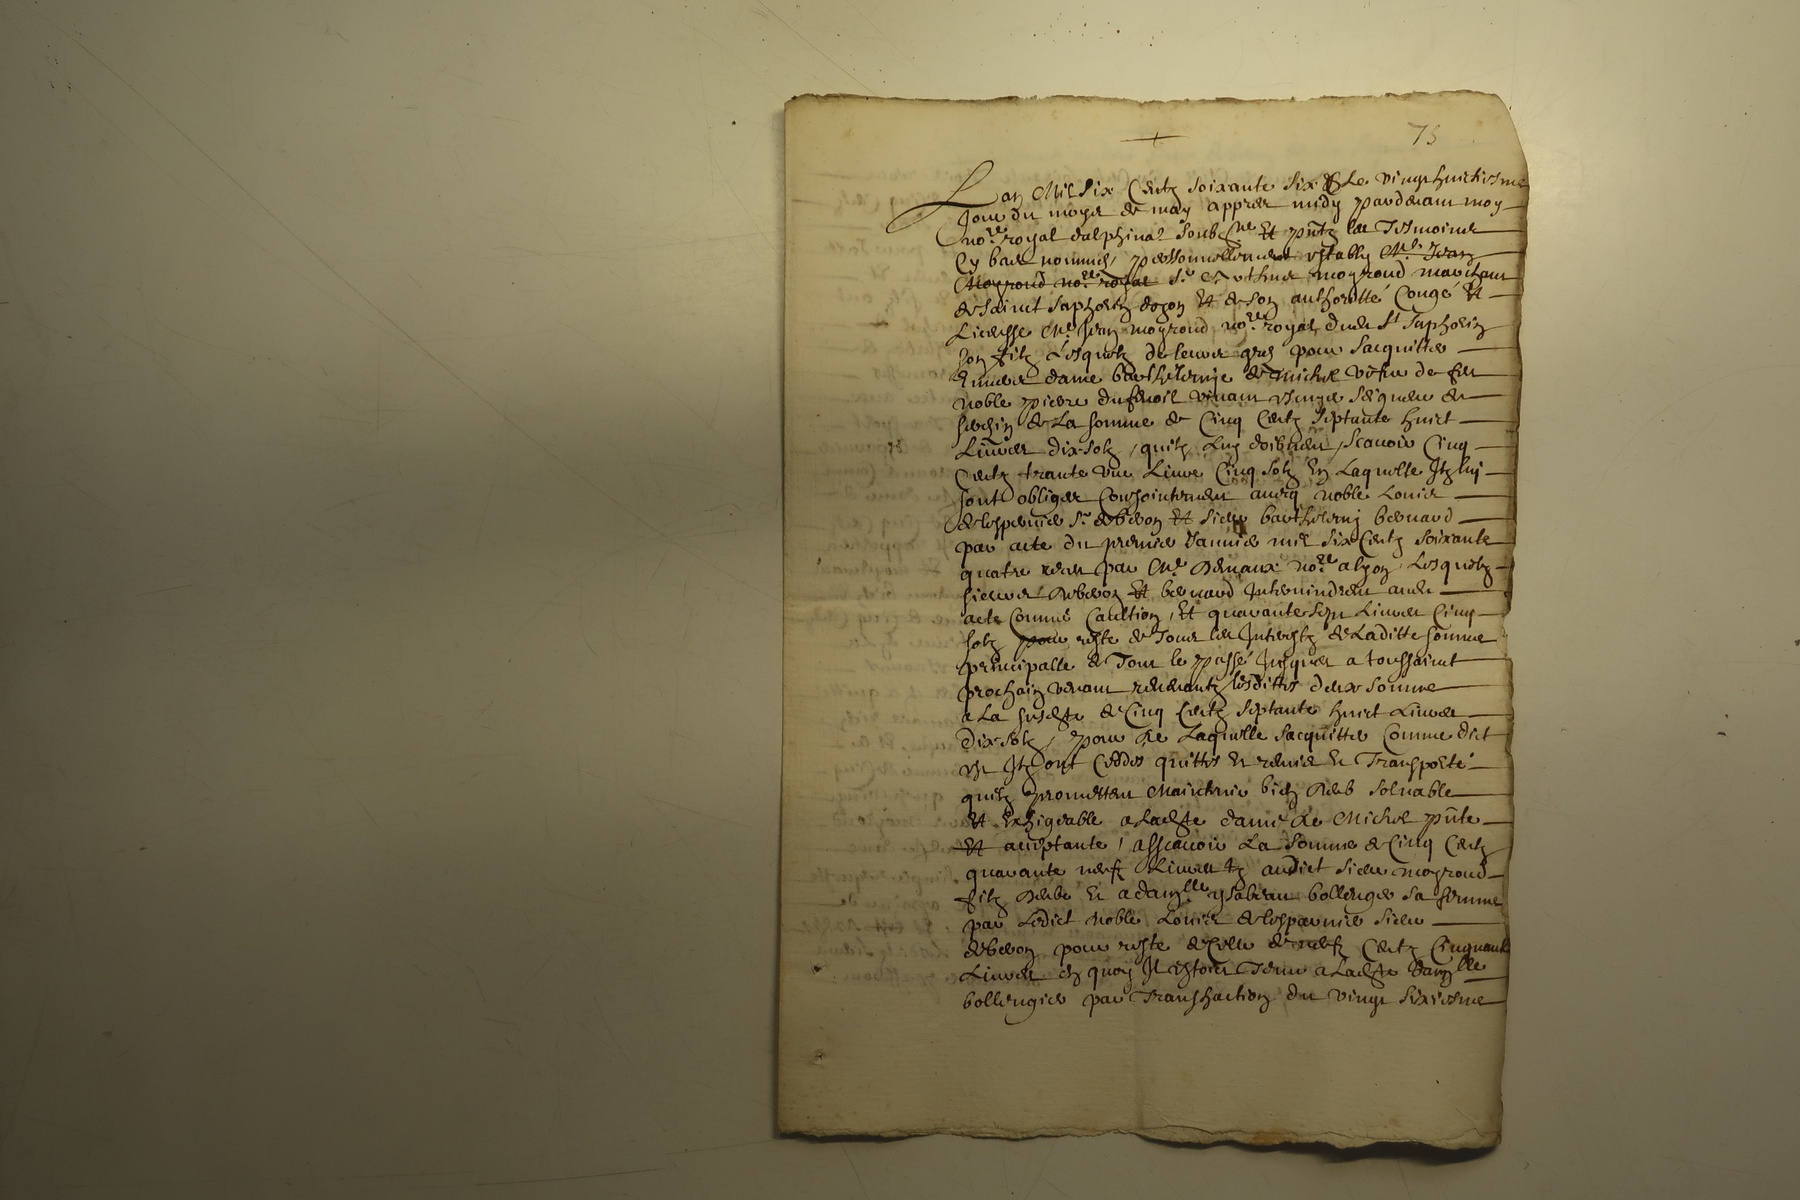 73
Lan Mil six Centz soixante six & Le vingthuictiesme
Jour du moys de may appres midy pardevant moy
no.re royal dalphinal soubz.ne et pñtz les Tesmoins
Cy bas nommés, personnellement estably Me. Jean
Moyroud no.re royal Sr moyroud marchant
de Saint Saphorin dozon Et de son authoritté Congé Et
Licensse Me. Jean moyroud no.re royal dudt St Saphorin
son filz Lesquelz de leurs grés pour Sacquitter
Enuers dame barthelemye de michel vefue de feu
noble pierre viuant Seigneur de
de La somme de Cinq Centz Septante huict
Liures dix solz, quilz Luy doibuent, scauoir Cinq
Centz trante une Liure Cinq solz En Laquelle Ilz luy
sont obliges Conjointement aueq noble Louis
de lesparuier Sr Et Sieur barthelemy bernard
par acte du premier Januier mil six Centz soixante
quatre receu par Me. no.re a lyon, Lesquelz
sieurs Et bernard Interuindrent audt
acte Comme Caultion, Et quarante sept Liures Cinq
solz pour reste de Tous les Interestz de Laditte somme
principalle de Tout le passé Jusques a toussaint
prochain venant reuenantz lesdittes deux somme
a La susdte de Cinq Centz septante huict Liures
dix solz, pour de Laquelle sacquitter Comme dict
est Ilz ont Ceddés quittés Et remis Et Transporté
quilz promettent Maintenir bien deub soluable
Et Exhigeable a Ladte dame de Michel pñte
Et acceptante, asscauoir La somme de Cinq Centz
quarante neuf Liures tz audict sieur moyroud
filz deube Et a damlle ysabeau bollengier sa femme
par Ledict noble Louis de lesparuier sieur
pour reste de Celle de neuf Centz Cinquante
Liures en quoy Il estoit Tenu a Ladte damlle
bollengier par Transhaction du vingt sixiesme